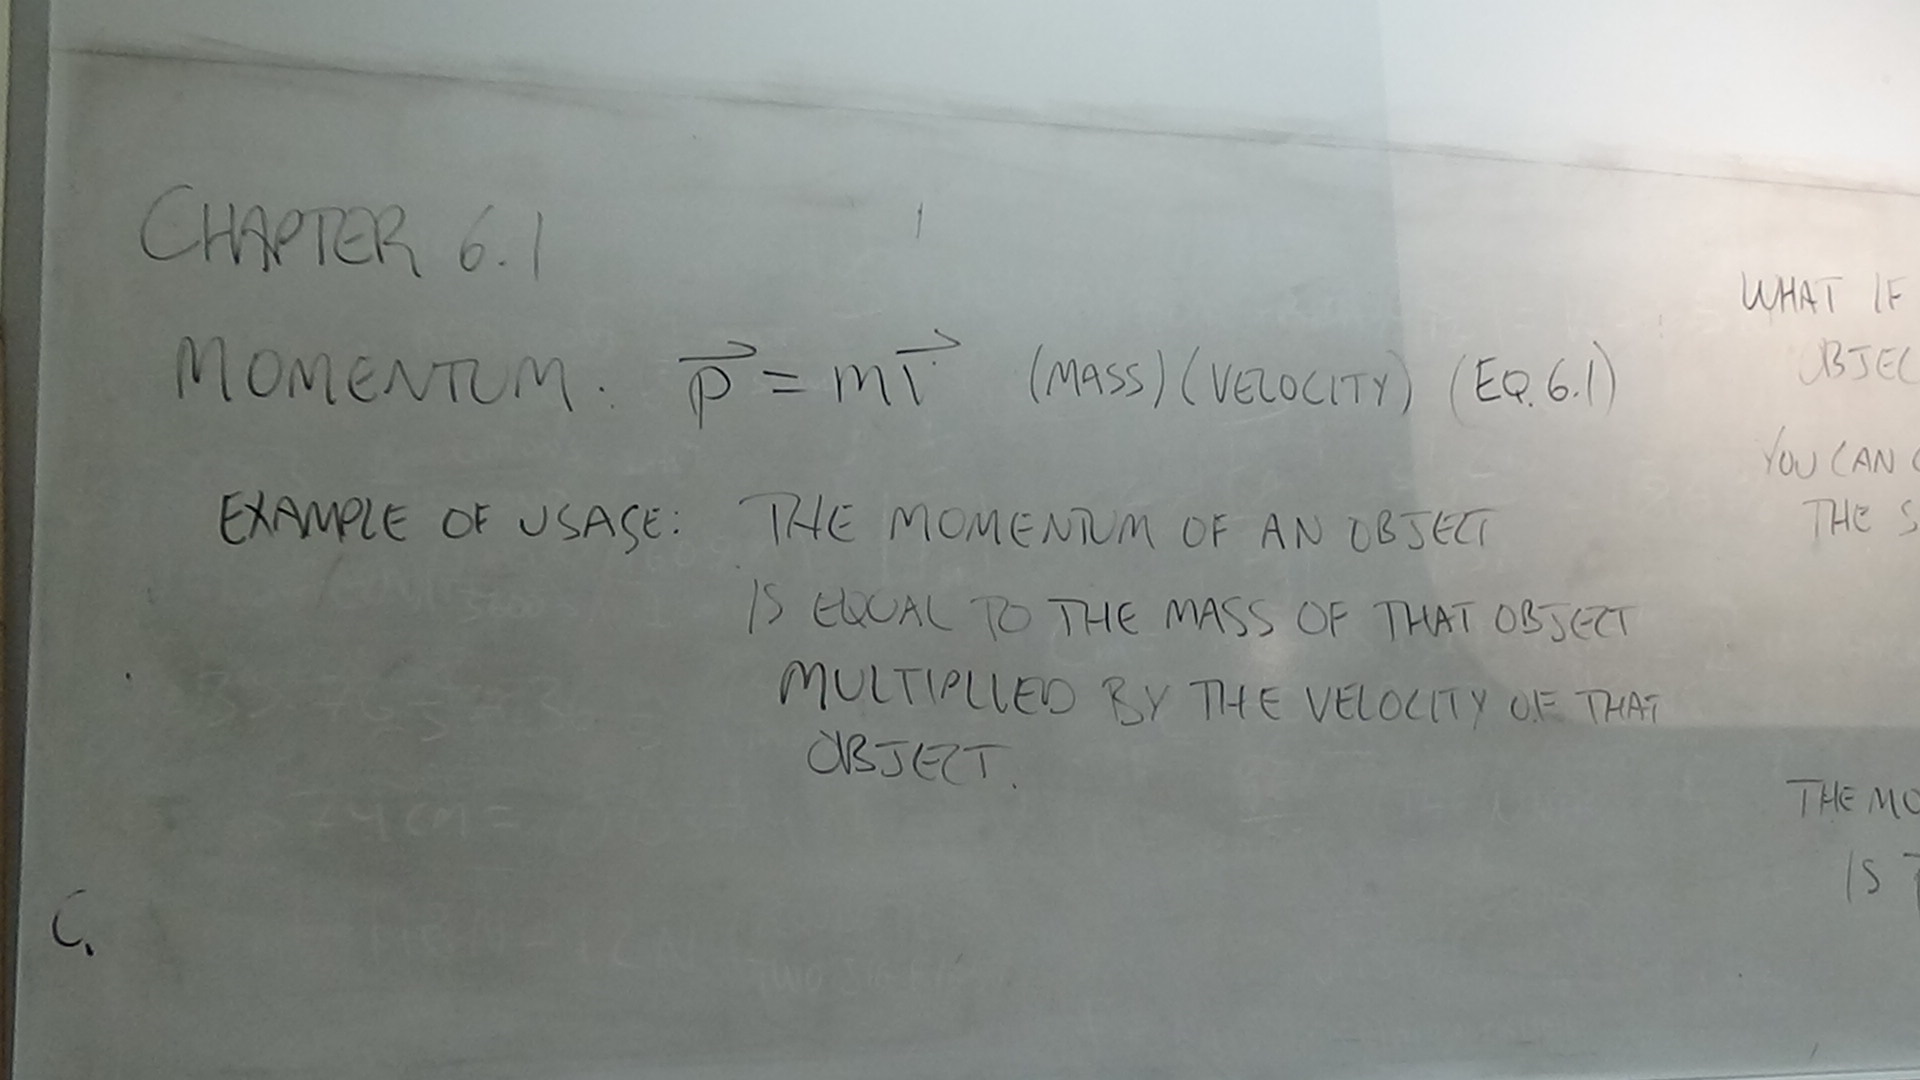 CHAPTER 6.1
MOMENTUM: p⃗ = mv⃗ (MASS)(VELOCITY) (EQ. 6.1)
EXAMPLE OF USAGE: THE MOMENTUM OF AN OBJECT
IS EQUAL TO THE MASS OF THAT OBJECT
MULTIPLIED BY THE VELOCITY OF THAT
OBJECT.
C.
WHAT IF
OBJEC
YOU CAN
THE S
THE MO
IS